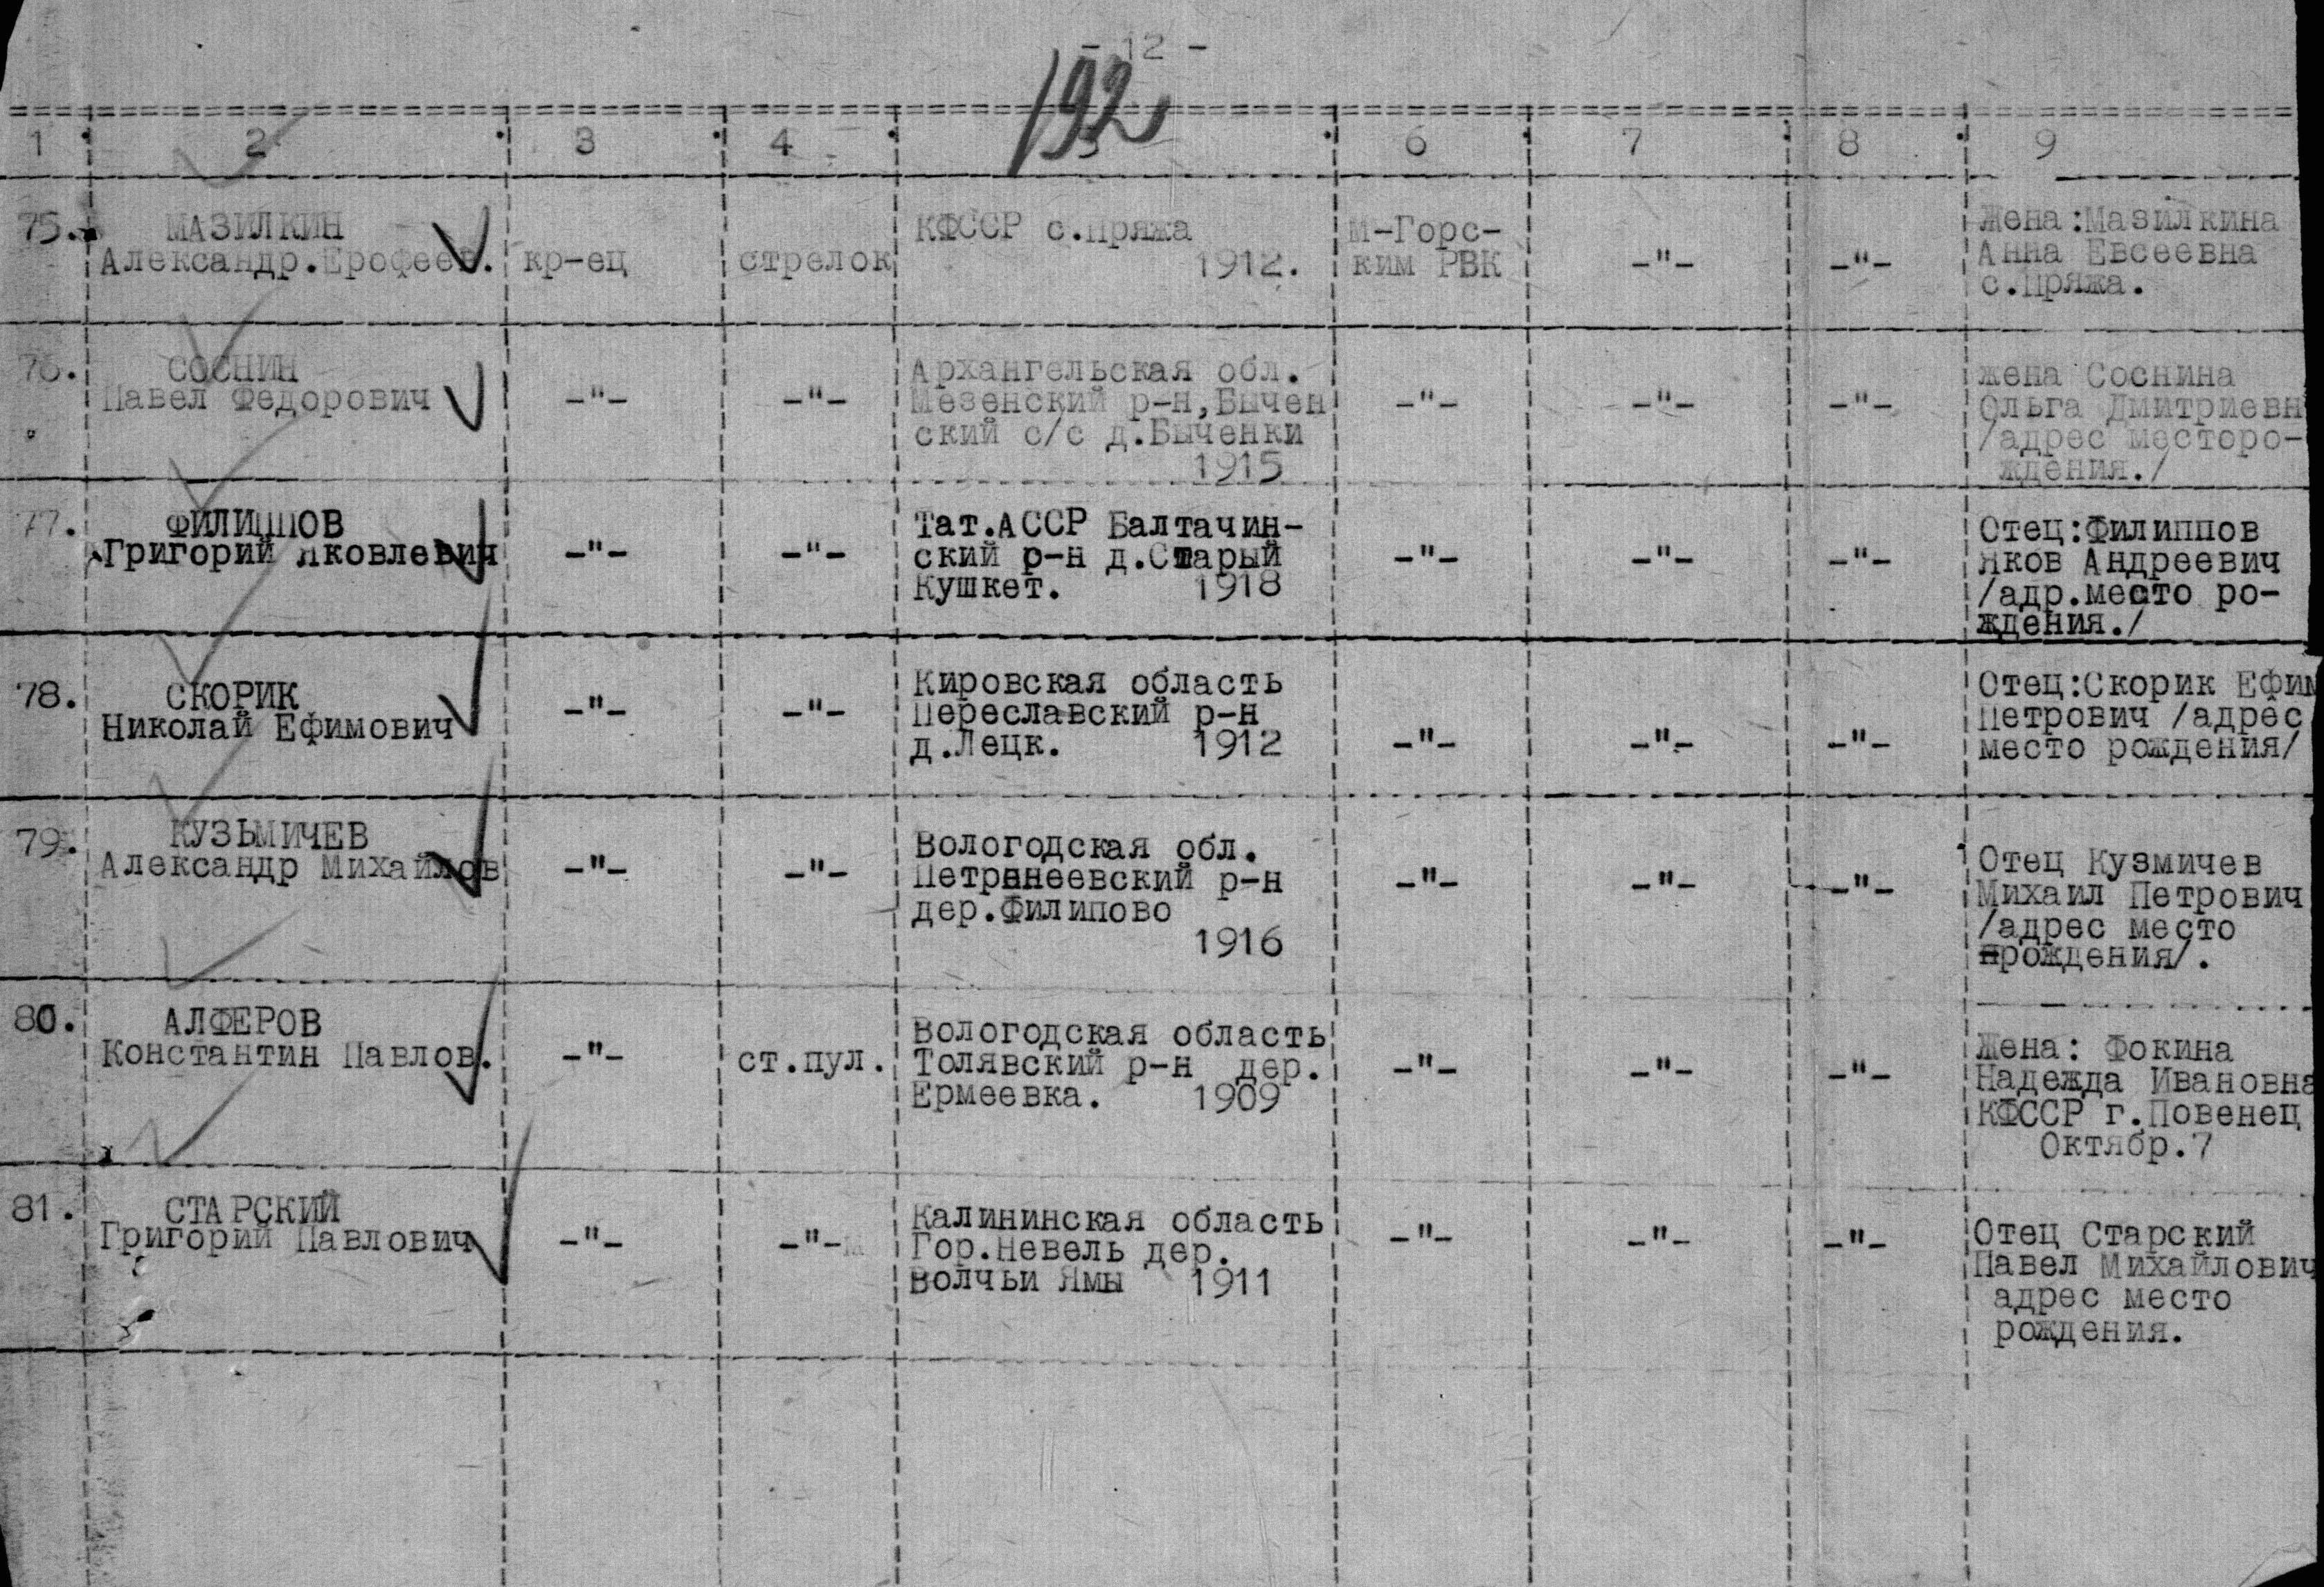 - 12 -
192
1 2 3 4 5 6 7 8 9
75. МАЗИЛКИН
Александр.Ерофеев.
кр-ец
стрелок
КФССР с.Пряжа
1912.
М-Горс-
ким РВК
-"-
-"-
Жена:Мазилкина
Анна Евсеевна
с.Пряжа.
76. СОСНИН
Павел Федорович
-"-
-"-
Архангельская обл.
Мезенский р-н,Бычен
ский с/с д.Быченки
1915
-"-
-"-
-"-
жена Соснина
Ольга Дмитриевн
/адрес месторо-
ждения./
77. ФИЛИППОВ
Григорий Яковлевич
-"-
-"-
Тат.АССР Балтачин-
ский р-н д.Старый
Кушкет. 1918
-"-
-"-
-"-
Отец:Филиппов
Яков Андреевич
/адр.место ро-
ждения./
78. СКОРИК
Николай Ефимович
-"-
-"-
Кировская область
Переславский р-н
д.Лецк. 1912
-"-
-"-
-"-
Отец:Скорик Ефим
Петрович /адрес
место рождения/
79. КУЗЬМИЧЕВ
Александр Михайлов
-"-
-"-
Вологодская обл.
р-н
дер.Филипово
1916
-"-
-"-
-"-
Отец Кузмичев
Михаил Петрович
/адрес место
рождения/.
80. АЛФЕРОВ
Константин Павлов.
-"-
ст.пул.
Вологодская область
Толявский р-н дер.
Ермеевка. 1909
-"-
-"-
-"-
Жена: Фокина
Надежда Ивановна
КФССР г.Повенец
Октябр.7
81. СТАРСКИЙ
Григорий Павлович
-"-
-"-
Калининская область
Гор.Невель дер.
Волчьи Ямы 1911
-"-
-"-
-"-
Отец Старский
Павел Михайлович
адрес место
рождения.